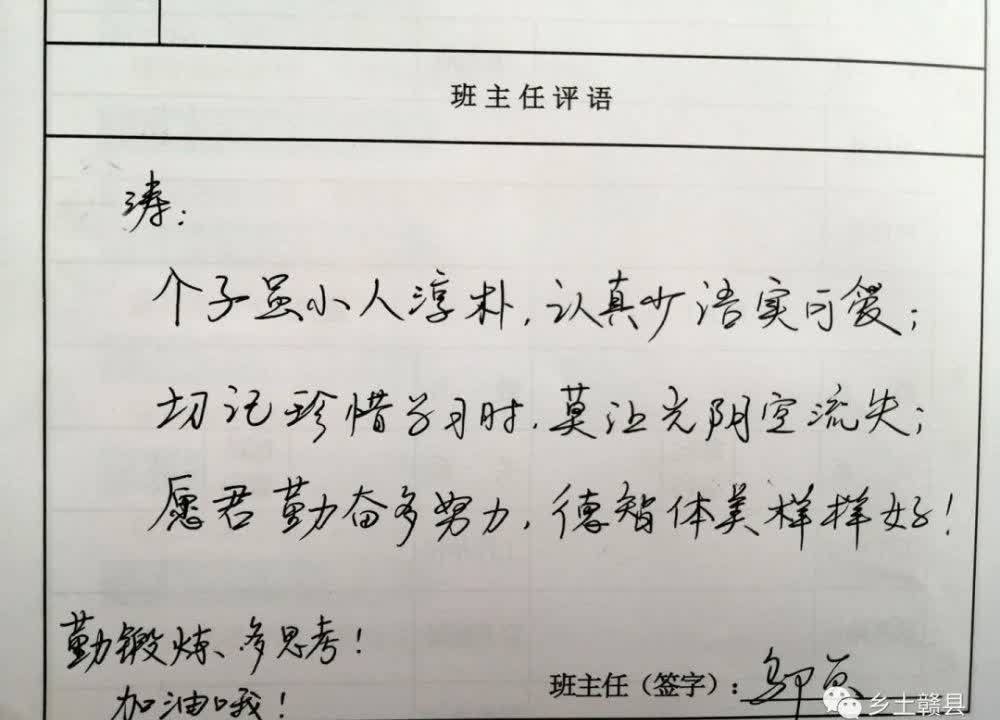 班主任评语
涛：
个子虽小人淳朴，认真少语实可爱；
切记珍惜学习时，莫让光阴空流失；
愿君勤奋多努力，德智体美样样好！
勤锻炼、多思考！
加油哦！
班主任（签字）：
乡土赣县